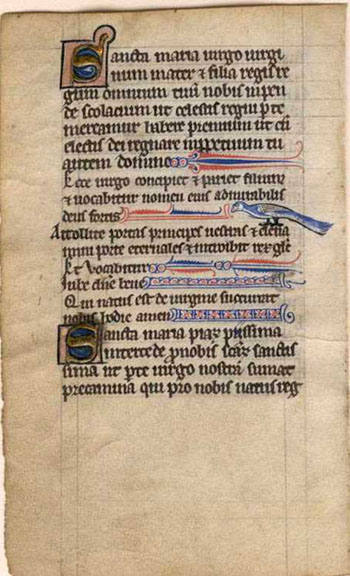 Sancta maria virgo virgi
num mater & filia regis re
gum omnium tuum nobis inpen
de solacium ut celestis regni p te
mereamur habere premium ut cu
electis dei regnare inppetuum tu
autem domine
Ecce virgo concipiet & pariet filium
& vocabitur nomen eius admirabilis
deus fortis
Attollite portas principes vestras & eleva
mini porte eternales & introibit rex glie
Et vocabitur
Iube dne bene
Qui natus est de virgine succurrat
nobis hodie amen
Sancta maria piar piissima
intercede p nobis scar sanctis
sima ut pte virgo nostra sumat
precamina qui pro nobis natus reg